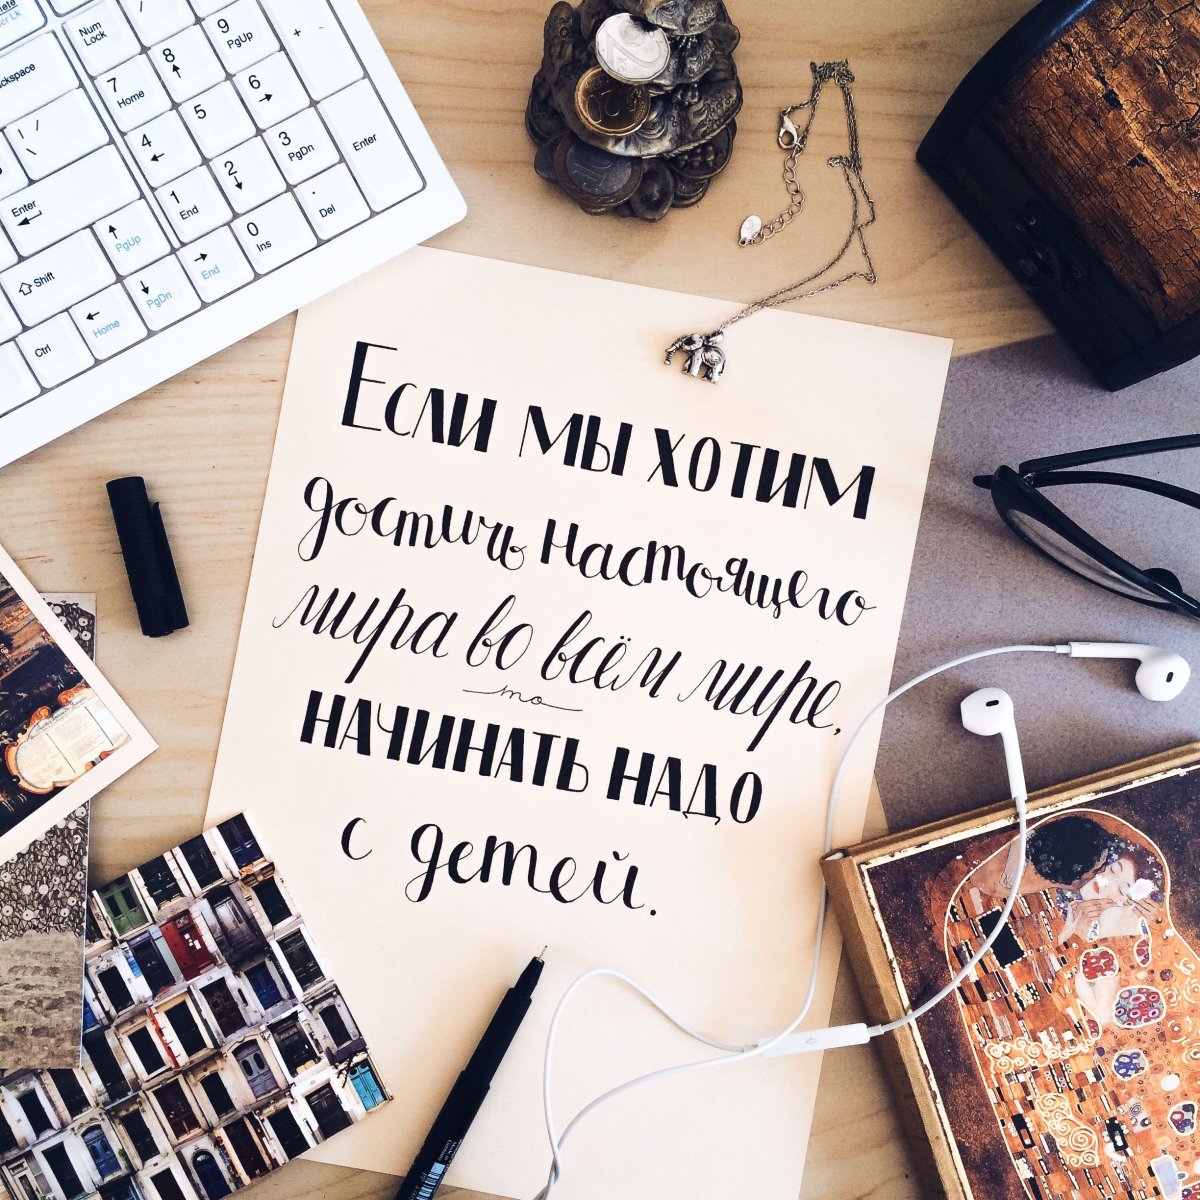 Delete
Scr Lk
Num Lock
/
9 PgUp
+
Backspace
7 Home
8
\ /
4
5
6
Enter
1 End
2
3 PgDn
Enter
Shift
PgUp
0 Ins
. Del
Ctrl
Home
PgDn
End
Если мы хотим
достичь настоящего
мира во всём мире,
то
начинать надо
с детей.